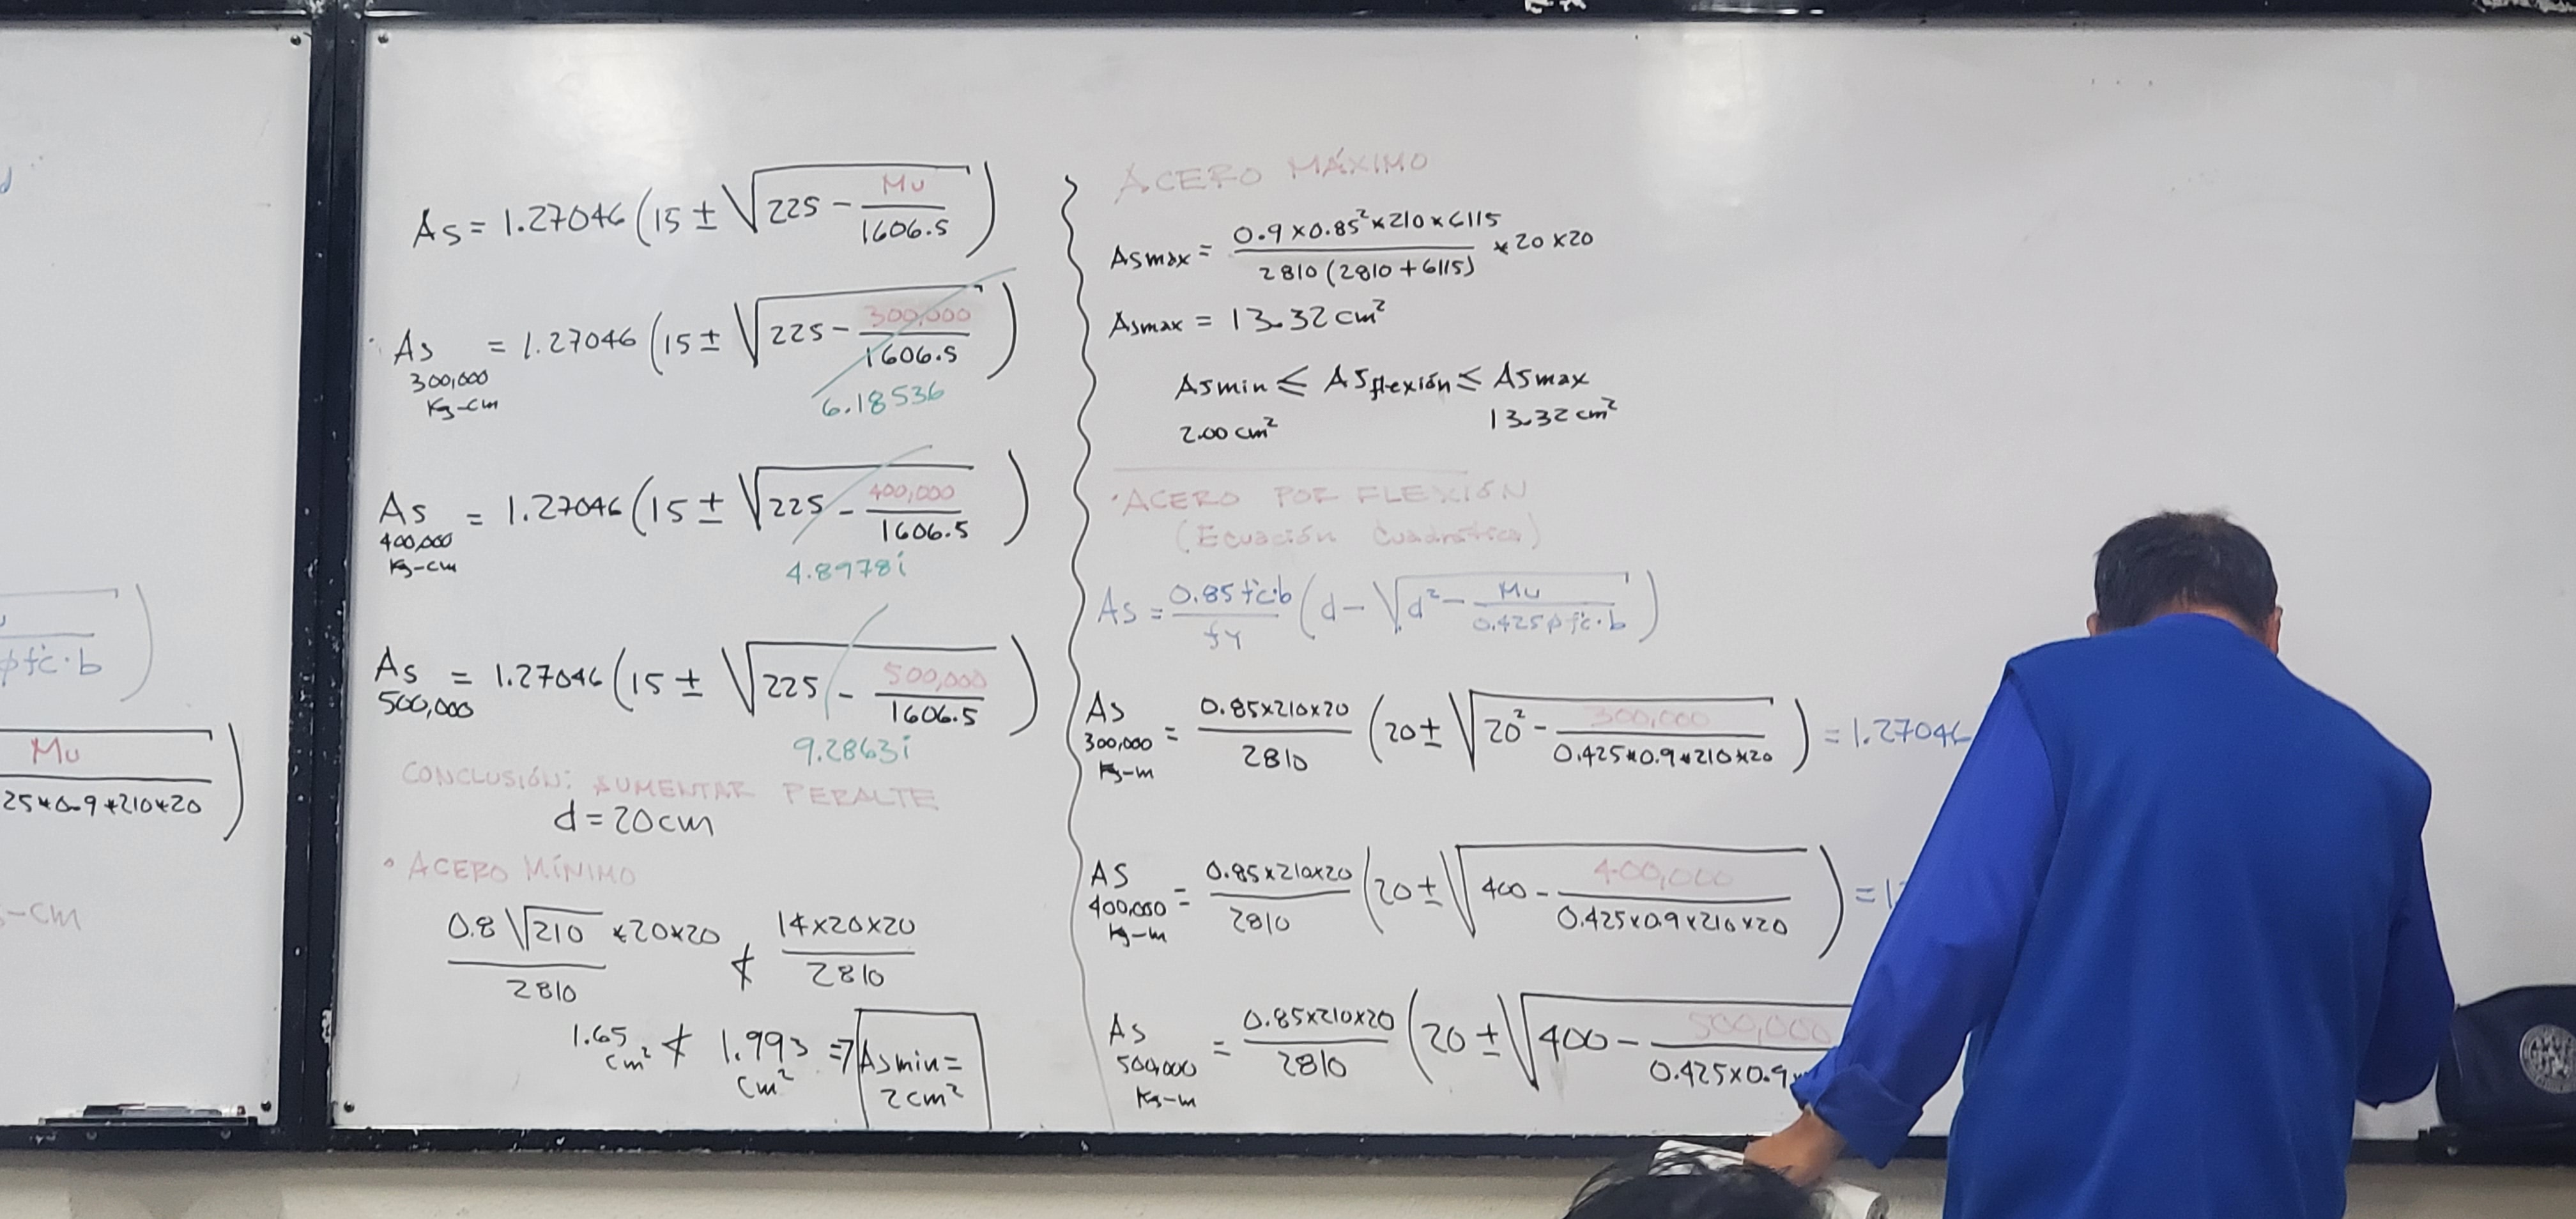 φf'c·b
Mu
25*0.9*210*20
-cm
As = 1.27046 (15 ± √(225 - Mu/1606.5))
As 300,000 Kg-cm = 1.27046 (15 ± √(225 - 300,000/1606.5))
6.18536
As 400,000 Kg-cm = 1.27046 (15 ± √(225 - 400,000/1606.5))
4.8978i
As 500,000 = 1.27046 (15 ± √(225 - 500,000/1606.5))
9.2863i
CONCLUSIÓN: AUMENTAR PERALTE
d = 20cm
• ACERO MÍNIMO
0.8√210/2810 *20x20 ≮ 14x20x20/2810
1.65 cm² ≮ 1.993 cm² => Asmin = 2cm²
ACERO MÁXIMO
Asmax = 0.9x0.85²x210x6115/2810(2810+6115) * 20x20
Asmax = 13.32 cm²
Asmin ≤ ASflexión ≤ ASmax
2.00 cm² 13.32 cm²
• ACERO POR FLEXIÓN
(Ecuación Cuadrática)
As = 0.85f'c·b/fy (d - √(d² - Mu/0.425φf'c·b))
As 300,000 Kg-m = 0.85x210x20/2810 (20 ± √(20² - 300,000/0.425*0.9*210*20)) = 1.27046
AS 400,000 Kg-m = 0.85x210x20/2810 (20 ± √(400 - 400,000/0.425x0.9x210x20)) = 1
As 500,000 Kg-m = 0.85x210x20/2810 (20 ± √(400 - 500,000/0.425x0.9